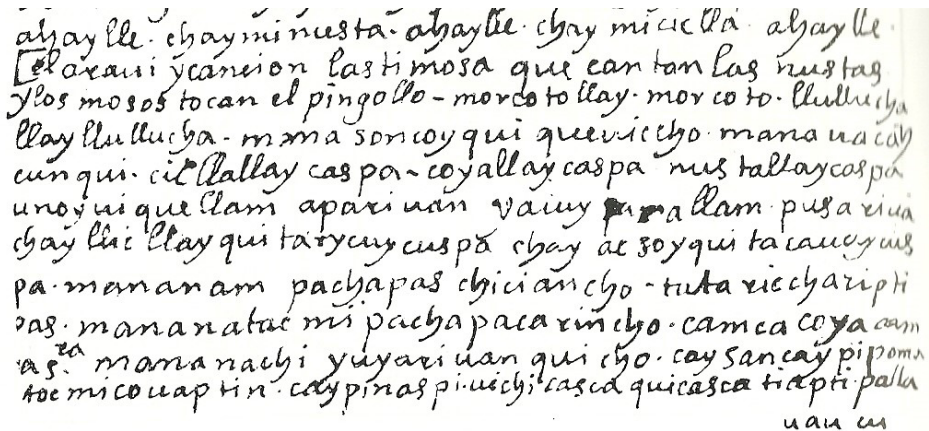 ahaylle· chaymi nusta· ahaylle· chay miciclla· ahaylle·
el araui ycancion lastimosa que cantan las nustas
ylos mosos tocan el pingollo – morcotollay· morcoto· llullucha
llayllullucha· mana soncoyqui queuiccho· mana uacay
cunqui· cicllallay caspa – coyallaycaspa nustallaycaspa
unoyuiquellam apariuan yacuy parallam· pusariua
chay llicllayquita rycuycuspa chay acsoyquita cauaycus
pa· mananam pachapas chiciancho – tuta riccharipti
pas· mananatac mi pacha pacarincho· camca coya cam
ca sra mananachi yuyariuanquicho· cay sancaypi poma
atoc micouaptin· caypinaspi uichicasca quicasca tiapti· palla
uan cu